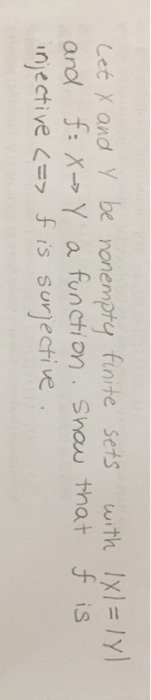 Let X and Y be nonempty finite sets with |X|=|Y|
and f: X→Y a function. Show that f is
injective <=> f is surjective.